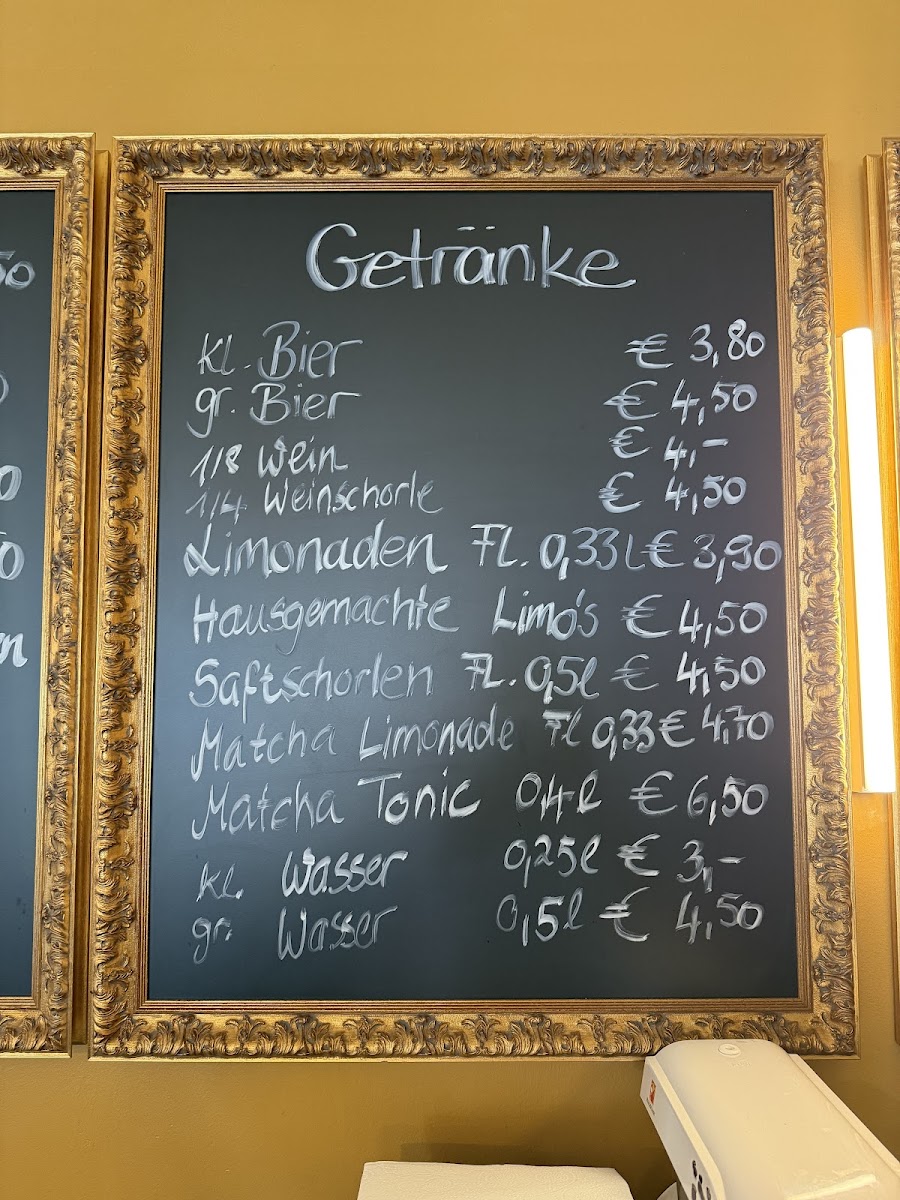 Getränke
kl. Bier € 3,80
gr. Bier € 4,50
1/8 Wein € 4,-
1/4 Weinschorle € 4,50
Limonaden Fl. 0,33 l € 3,90
Hausgemachte Limo's € 4,50
Saftschorlen Fl. 0,5l € 4,50
Matcha Limonade Fl 0,33 € 4,70
Matcha Tonic 0,4l € 6,50
kl. Wasser 0,25l € 3,-
gr. Wasser 0,5l € 4,50